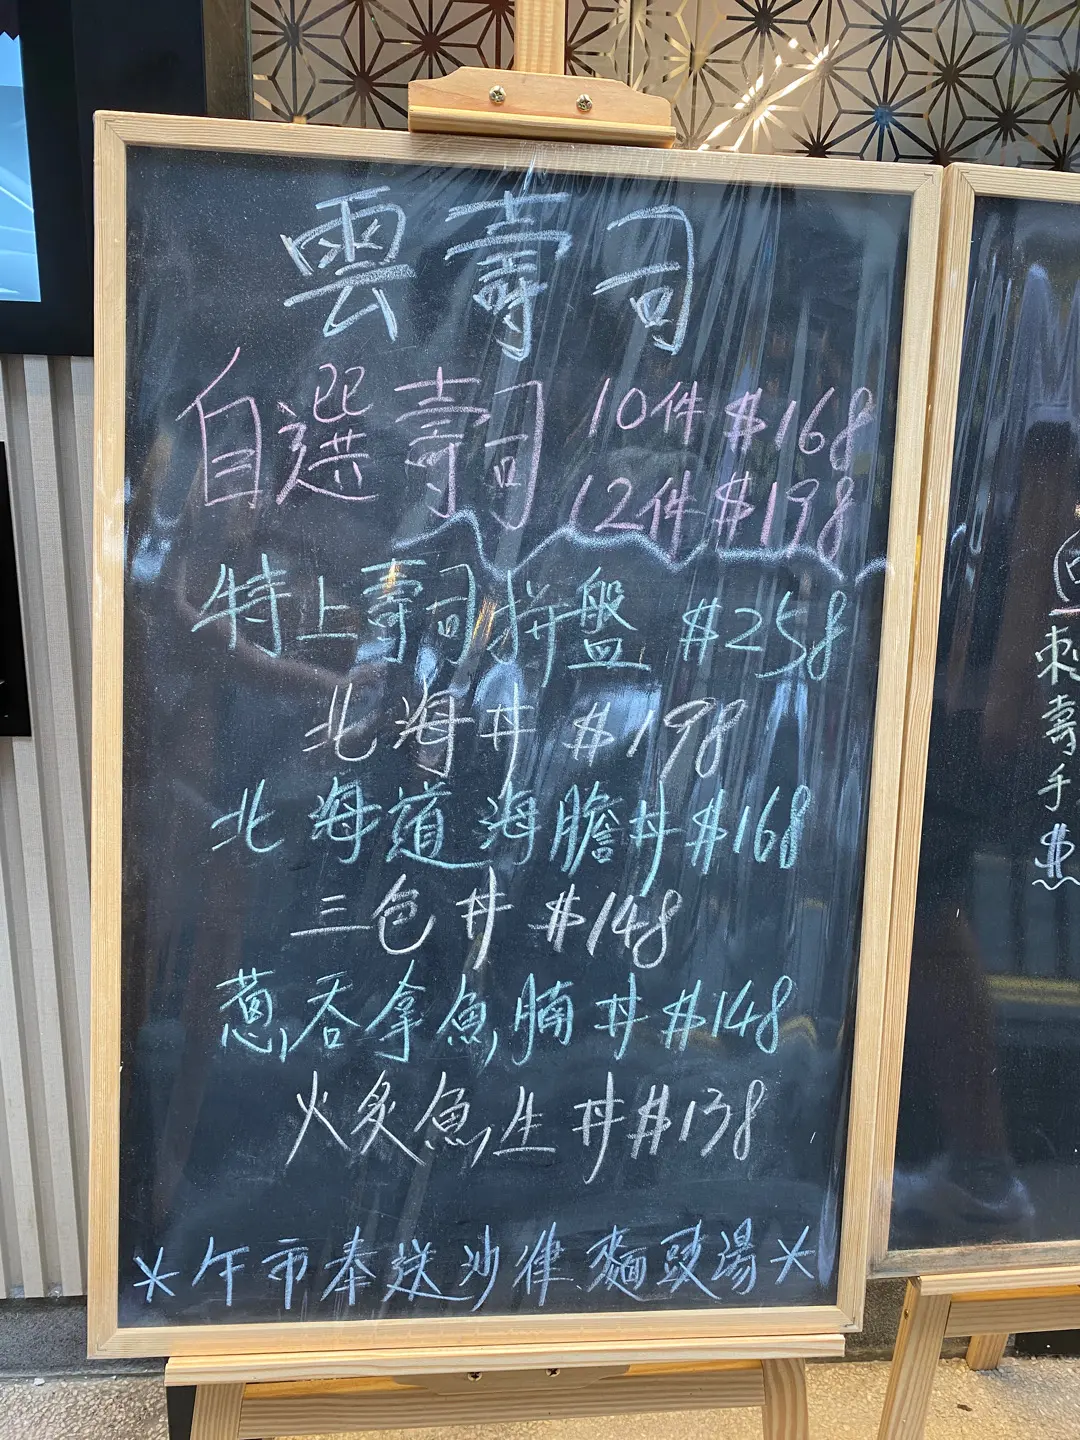 雲壽司
自選壽司 10件 $168
12件 $198
特上壽司拼盤 $258
北海丼 $198
北海道海膽丼 $168
三色丼 $148
蔥吞拿魚腩丼 $148
火炙魚生丼 $138
*午市奉送沙律 麵豉湯*
刺
壽
手
$